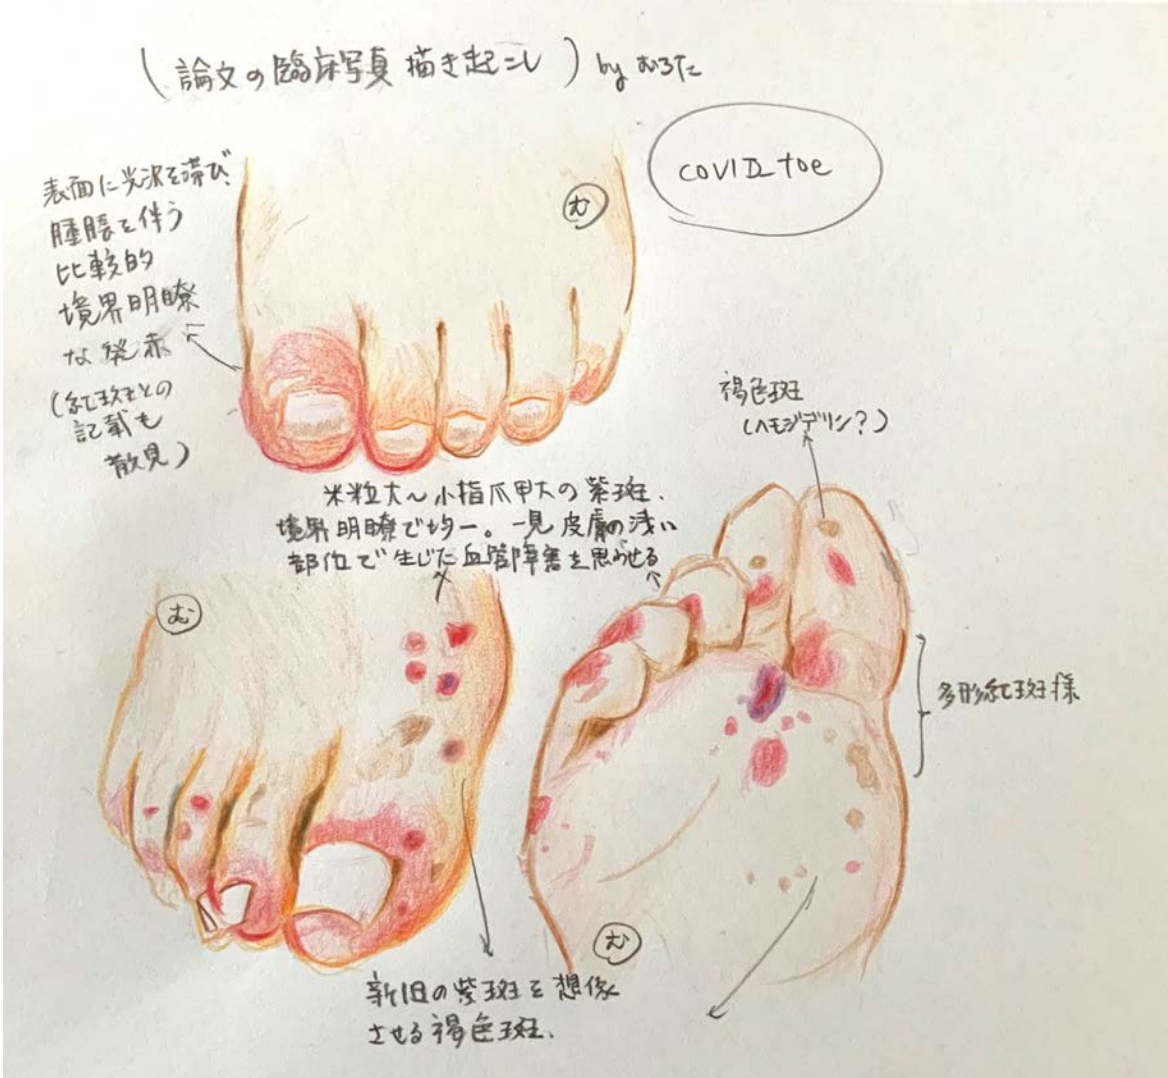 (論文の臨床写真 描き起こし) by むろた
COVID toe
表面に光沢を帯び、
腫脹を伴う
比較的
境界明瞭
な発赤
(紅斑との
記載も
散見)
む
褐色斑
(ヘモジデリン?)
米粒大~小指爪甲大の紫斑.
境界明瞭で均一。一見皮膚の浅い
部位で生じた血管障害を思わせる
む
多形紅斑様
む
新旧の紫斑を想像
させる褐色斑.